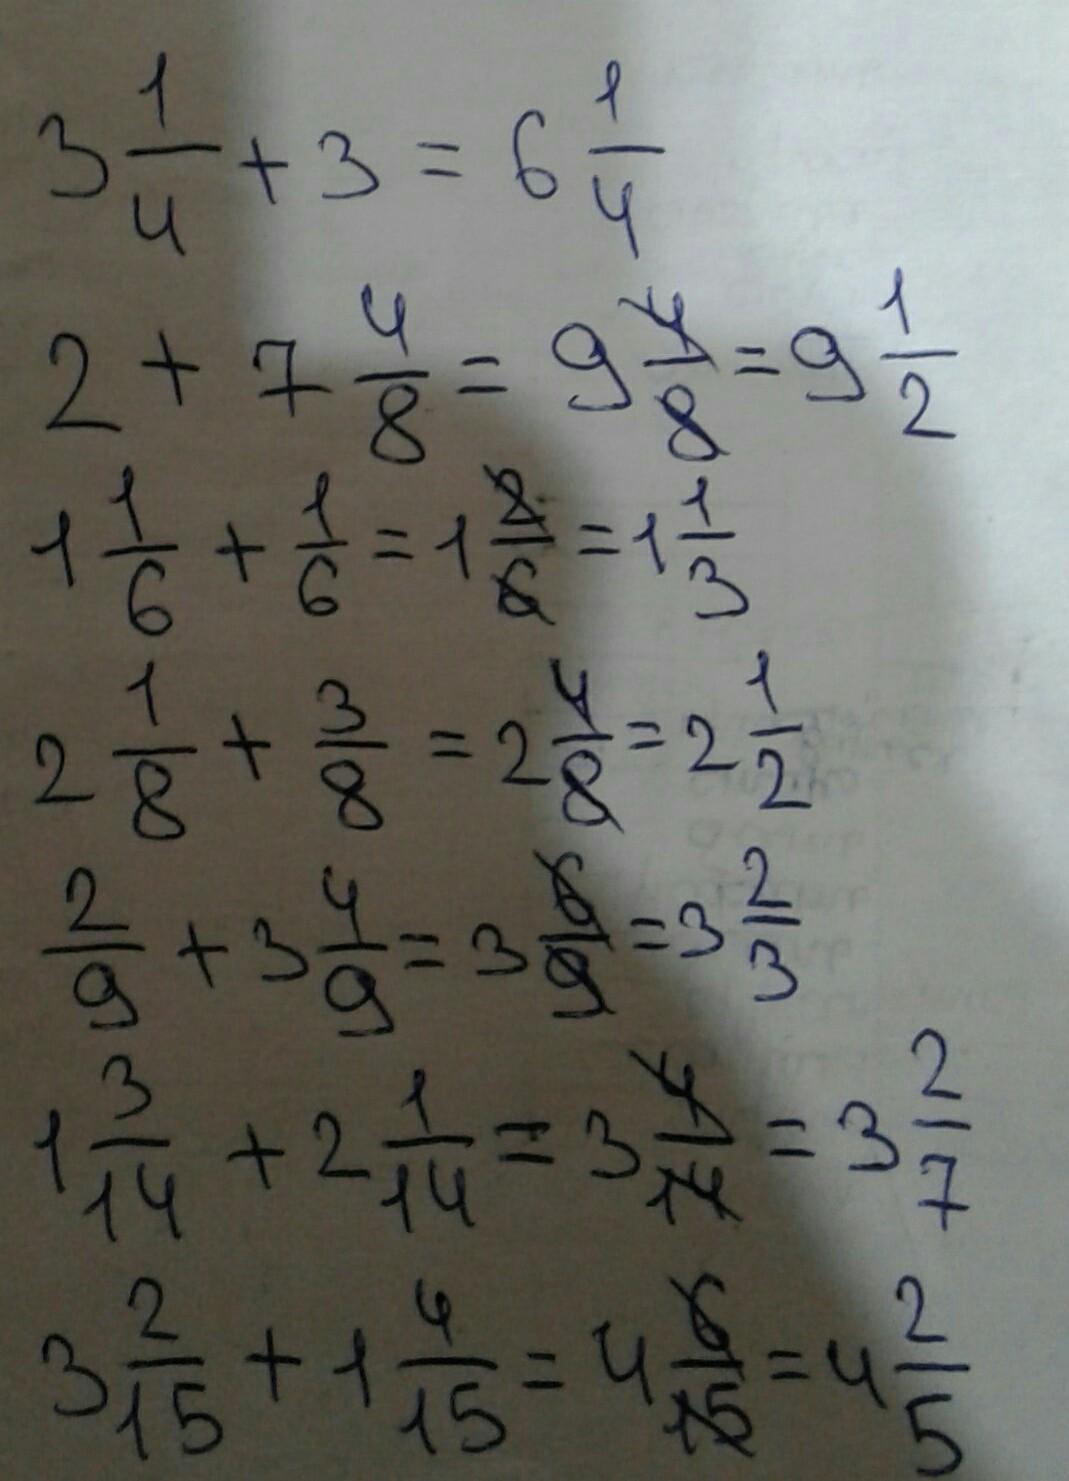 3 1/4 + 3 = 6 1/4
2 + 7 4/8 = 9 4/8 = 9 1/2
1 1/6 + 1/6 = 1 2/6 = 1 1/3
2 1/8 + 3/8 = 2 4/8 = 2 1/2
2/9 + 3 4/9 = 3 6/9 = 3 2/3
1 3/14 + 2 1/14 = 3 4/14 = 3 2/7
3 2/15 + 1 4/15 = 4 6/15 = 4 2/5